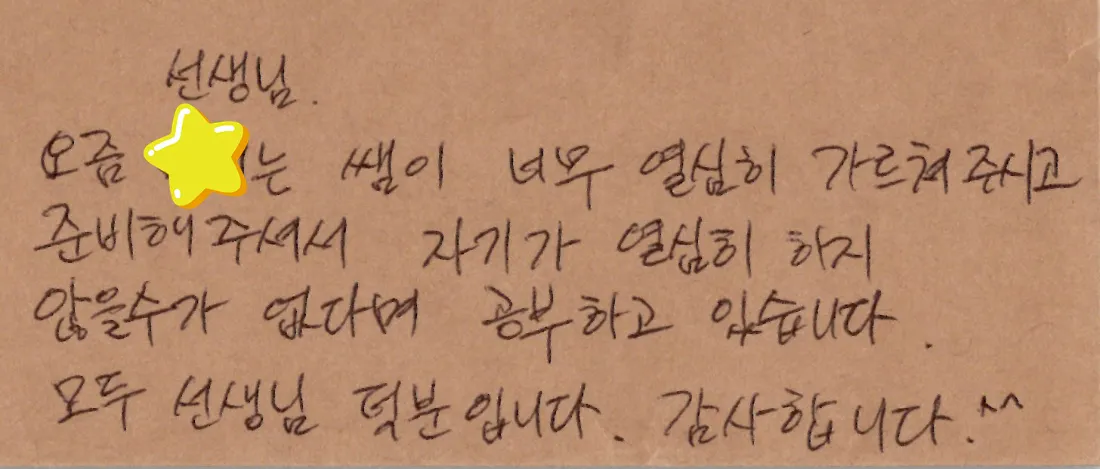 선생님.
요즘 는 쌤이 너무 열심히 가르쳐주시고
준비해주셔서 자기가 열심히 하지
않을수가 없다며 공부하고 있습니다.
모두 선생님 덕분입니다. 감사합니다.^^